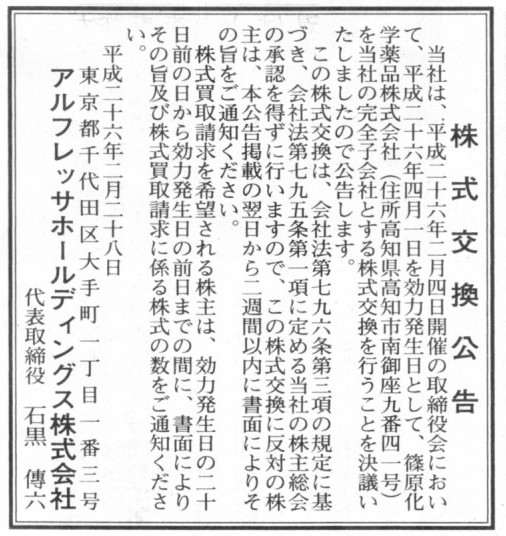 株式交換公告
当社は、平成二十六年二月四日開催の取締役会におい
て、平成二十六年四月一日を効力発生日として、篠原化
学薬品株式会社（住所高知県高知市南御座九番四一号）
を当社の完全子会社とする株式交換を行うことを決議い
たしましたので公告します。
この株式交換は、会社法第七九六条第三項の規定に基
づき、会社法第七九五条第一項に定める当社の株主総会
の承認を得ずに行いますので、この株式交換に反対の株
主は、本公告掲載の翌日から二週間以内に書面によりそ
の旨をご通知ください。
株式買取請求を希望される株主は、効力発生日の二十
日前の日から効力発生日の前日までの間に、書面により
その旨及び株式買取請求に係る株式の数をご通知くださ
い。
平成二十六年二月二十八日
東京都千代田区大手町一丁目一番三号
アルフレッサホールディングス株式会社
代表取締役 石黒 傳六